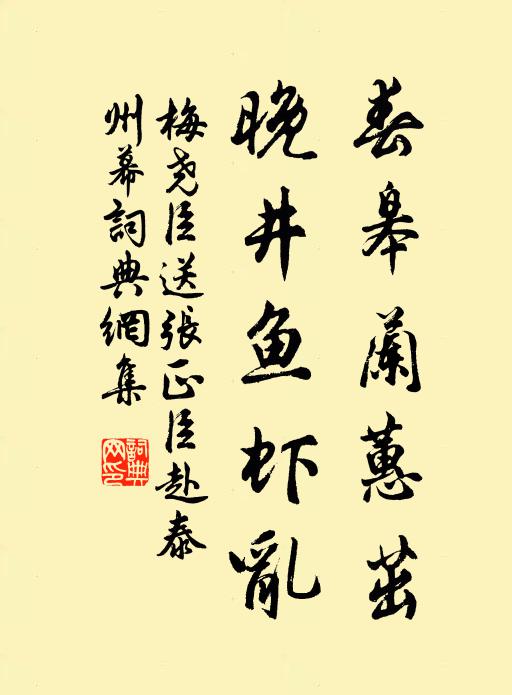 春皋蘭蕙茁
晚井鱼虾亂
梅尧臣送張正臣赴泰
州幕詞典網集
詞典网印